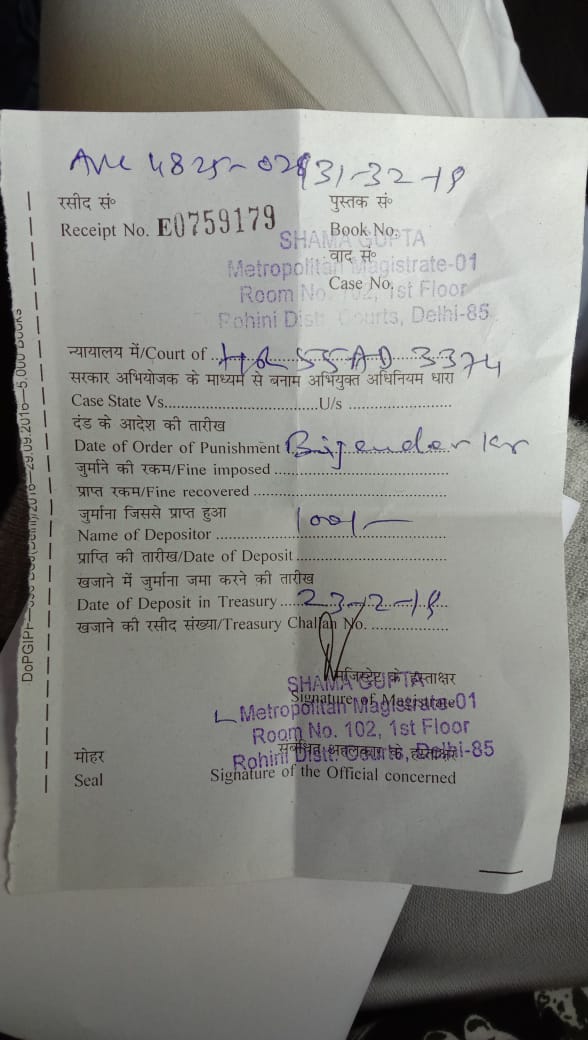 रसीद सं॰
Receipt No. E0759179
पुस्तक सं॰
Book No.
SHAMA GUPTA
वाद सं॰
Metropolitan Magistrate-01
Case No.
Room No. 102, 1st Floor
Rohini Distt. Courts, Delhi-85
न्यायालय में/Court of HR 55AD 3374
सरकार अभियोजक के माध्यम से बनाम अभियुक्त अधिनियम धारा
Case State Vs.........................U/s ......................
दंड के आदेश की तारीख
Date of Order of Punishment Bijender Kr
जुर्माने की रकम/Fine imposed ....................................
प्राप्त रकम/Fine recovered ........................................
जुर्माना जिससे प्राप्त हुआ 100/-
Name of Depositor ................................................
प्राप्ति की तारीख/Date of Deposit ................................
खजाने में जुर्माना जमा करने की तारीख
Date of Deposit in Treasury 23-2-19
खजाने की रसीद संख्या/Treasury Challan No. ................
मजिस्ट्रेट के हस्ताक्षर
SHAMA GUPTA
Signature of Magistrate
Metropolitan Magistrate-01
Room No. 102, 1st Floor
संबंधित अहलकार के हस्ताक्षर
Rohini Distt. Courts, Delhi-85
मोहर
Seal
Signature of the Official concerned